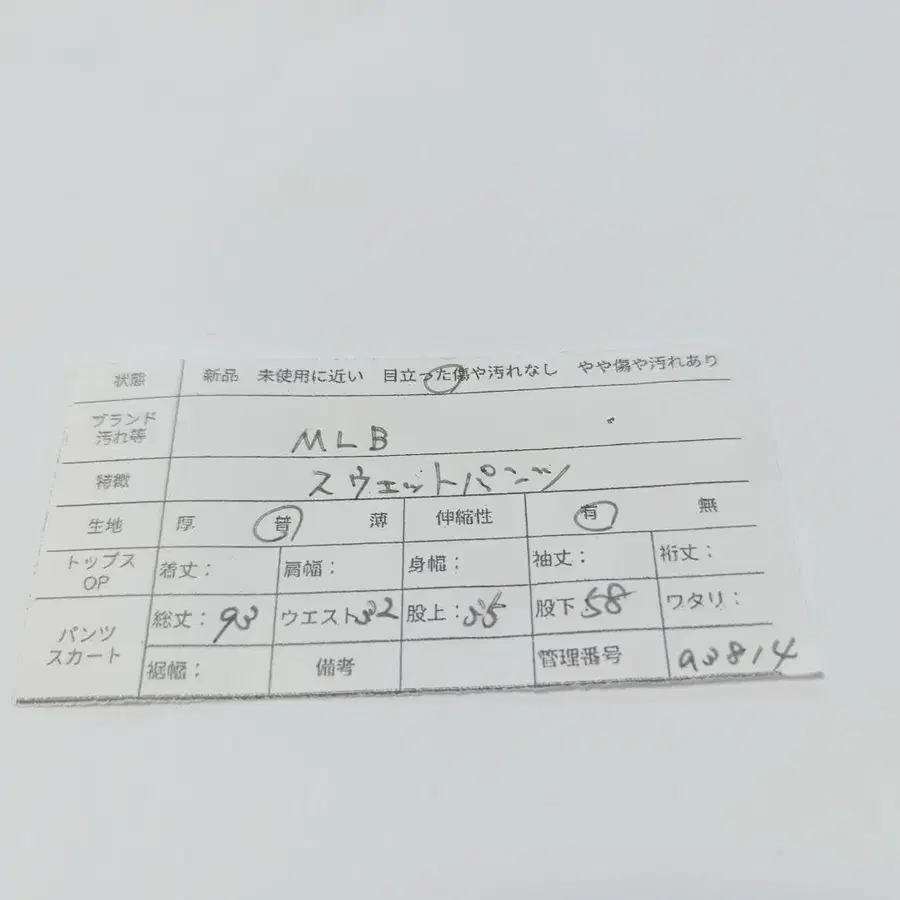 状態 新品 未使用に近い 目立った傷や汚れなし やや傷や汚れあり
ブランド
汚れ等 MLB
特徴 スウェットパンツ
生地 厚 普 薄 伸縮性 有 無
トップス
OP 着丈： 肩幅： 身幅： 袖丈： 裄丈：
パンツ
スカート 総丈：93 ウエスト32 股上：35 股下58 ワタリ：
裾幅： 備考 管理番号 a3814